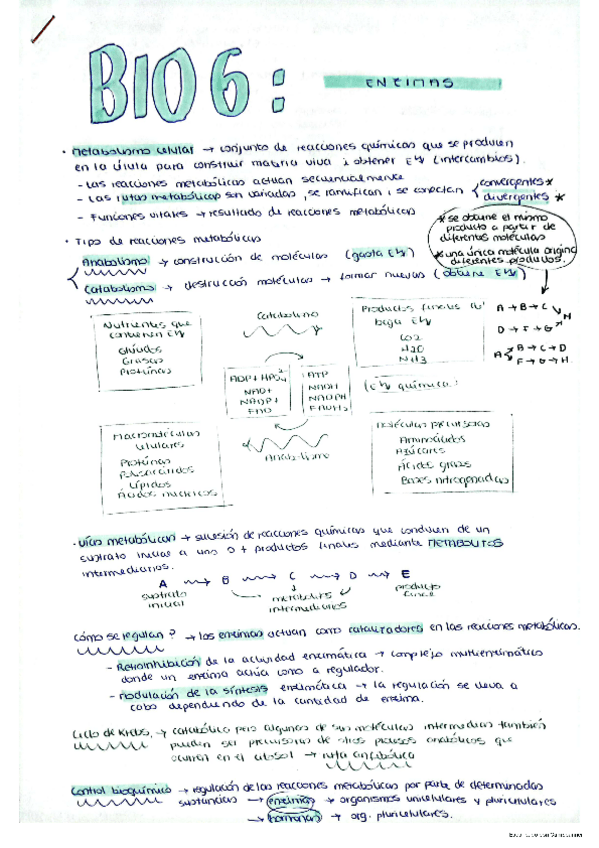 BIO 6:
ENZIMAS
· Metabolismo celular → conjunto de reacciones químicas que se producen
en la célula para construir materia viva i obtener EN (intercambios).
- Las reacciones metabólicas actúan secuencialmente
- Las rutas metabólicas son variadas, se ramifican i se conectan { convergentes *
divergentes *
- Funciones vitales → resultado de reacciones metabólicas
* se obtiene el mismo
producto a partir de
diferentes moléculas
* una única molécula origina
diferentes productos.
· Tipos de reacciones metabólicas
Anabolismo → construcción de moléculas (gasta EN)
Catabolismo → destrucción moléculas → formar nuevas (obtiene EN)
Nutrientes que
contienen EN
Glúcidos
Grasas
Proteínas
Catabolismo
Productos finales de
baja EN
CO2
H2O
NH3
A → B → C
N
D → F → G
A
B → C → D
F → G → H
ADP + HPO4
NAD+
NADP+
FAD
ATP
NADH
NADPH
FADH2
(EN química)
Macromoléculas
celulares
Proteínas
Polisacáridos
Lípidos
Ácidos nucleicos
Anabolismo
Moléculas precursoras
Aminoácidos
Azúcares
Ácidos grasos
Bases nitrogenadas
· Vías metabólicas → sucesión de reacciones químicas que conducen de un
sustrato inicial a uno o + productos finales mediante METABOLITOS
intermediarios.
A B C D E
sustrato
inicial
metabolitos
intermediarios
producto
final
Cómo se regulan? → las enzimas actúan como catalizadores en las reacciones metabólicas.
- Retroinhibición de la actividad enzimática → complejo multienzimático
donde un enzima actúa como a regulador.
- Modulación de la síntesis enzimática → la regulación se lleva a
cabo dependiendo de la cantidad de enzima.
Ciclo de Krebs, → catabólico pero algunas de sus moléculas intermedias también
pueden ser precursoras de otros procesos anabólicos que
ocurren en el citosol → ruta anfibólica
Control bioquímico → regulación de las reacciones metabólicas por parte de determinadas
sustancias → enzimas → organismos unicelulares y pluricelulares
→ hormonas → org. pluricelulares.